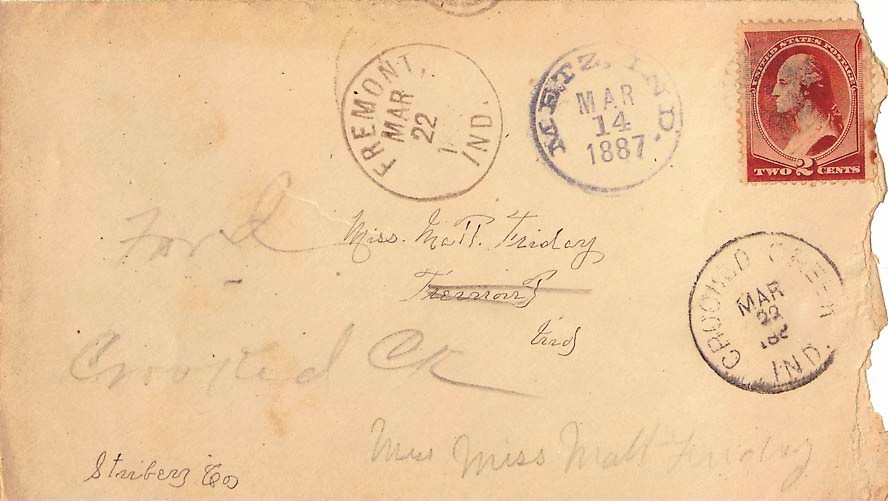 FREMONT,
MAR
22
1
IND.
METZ, IND.
MAR
14
1887
UNITED STATES POSTAGE
TWO 2 CENTS
Ford
Miss. Matt. Friday
Fremont
Ind
CROOKED CREEK
MAR
22
188
IND.
Crooked Ck
Miss Matt Friday
Struberz Co